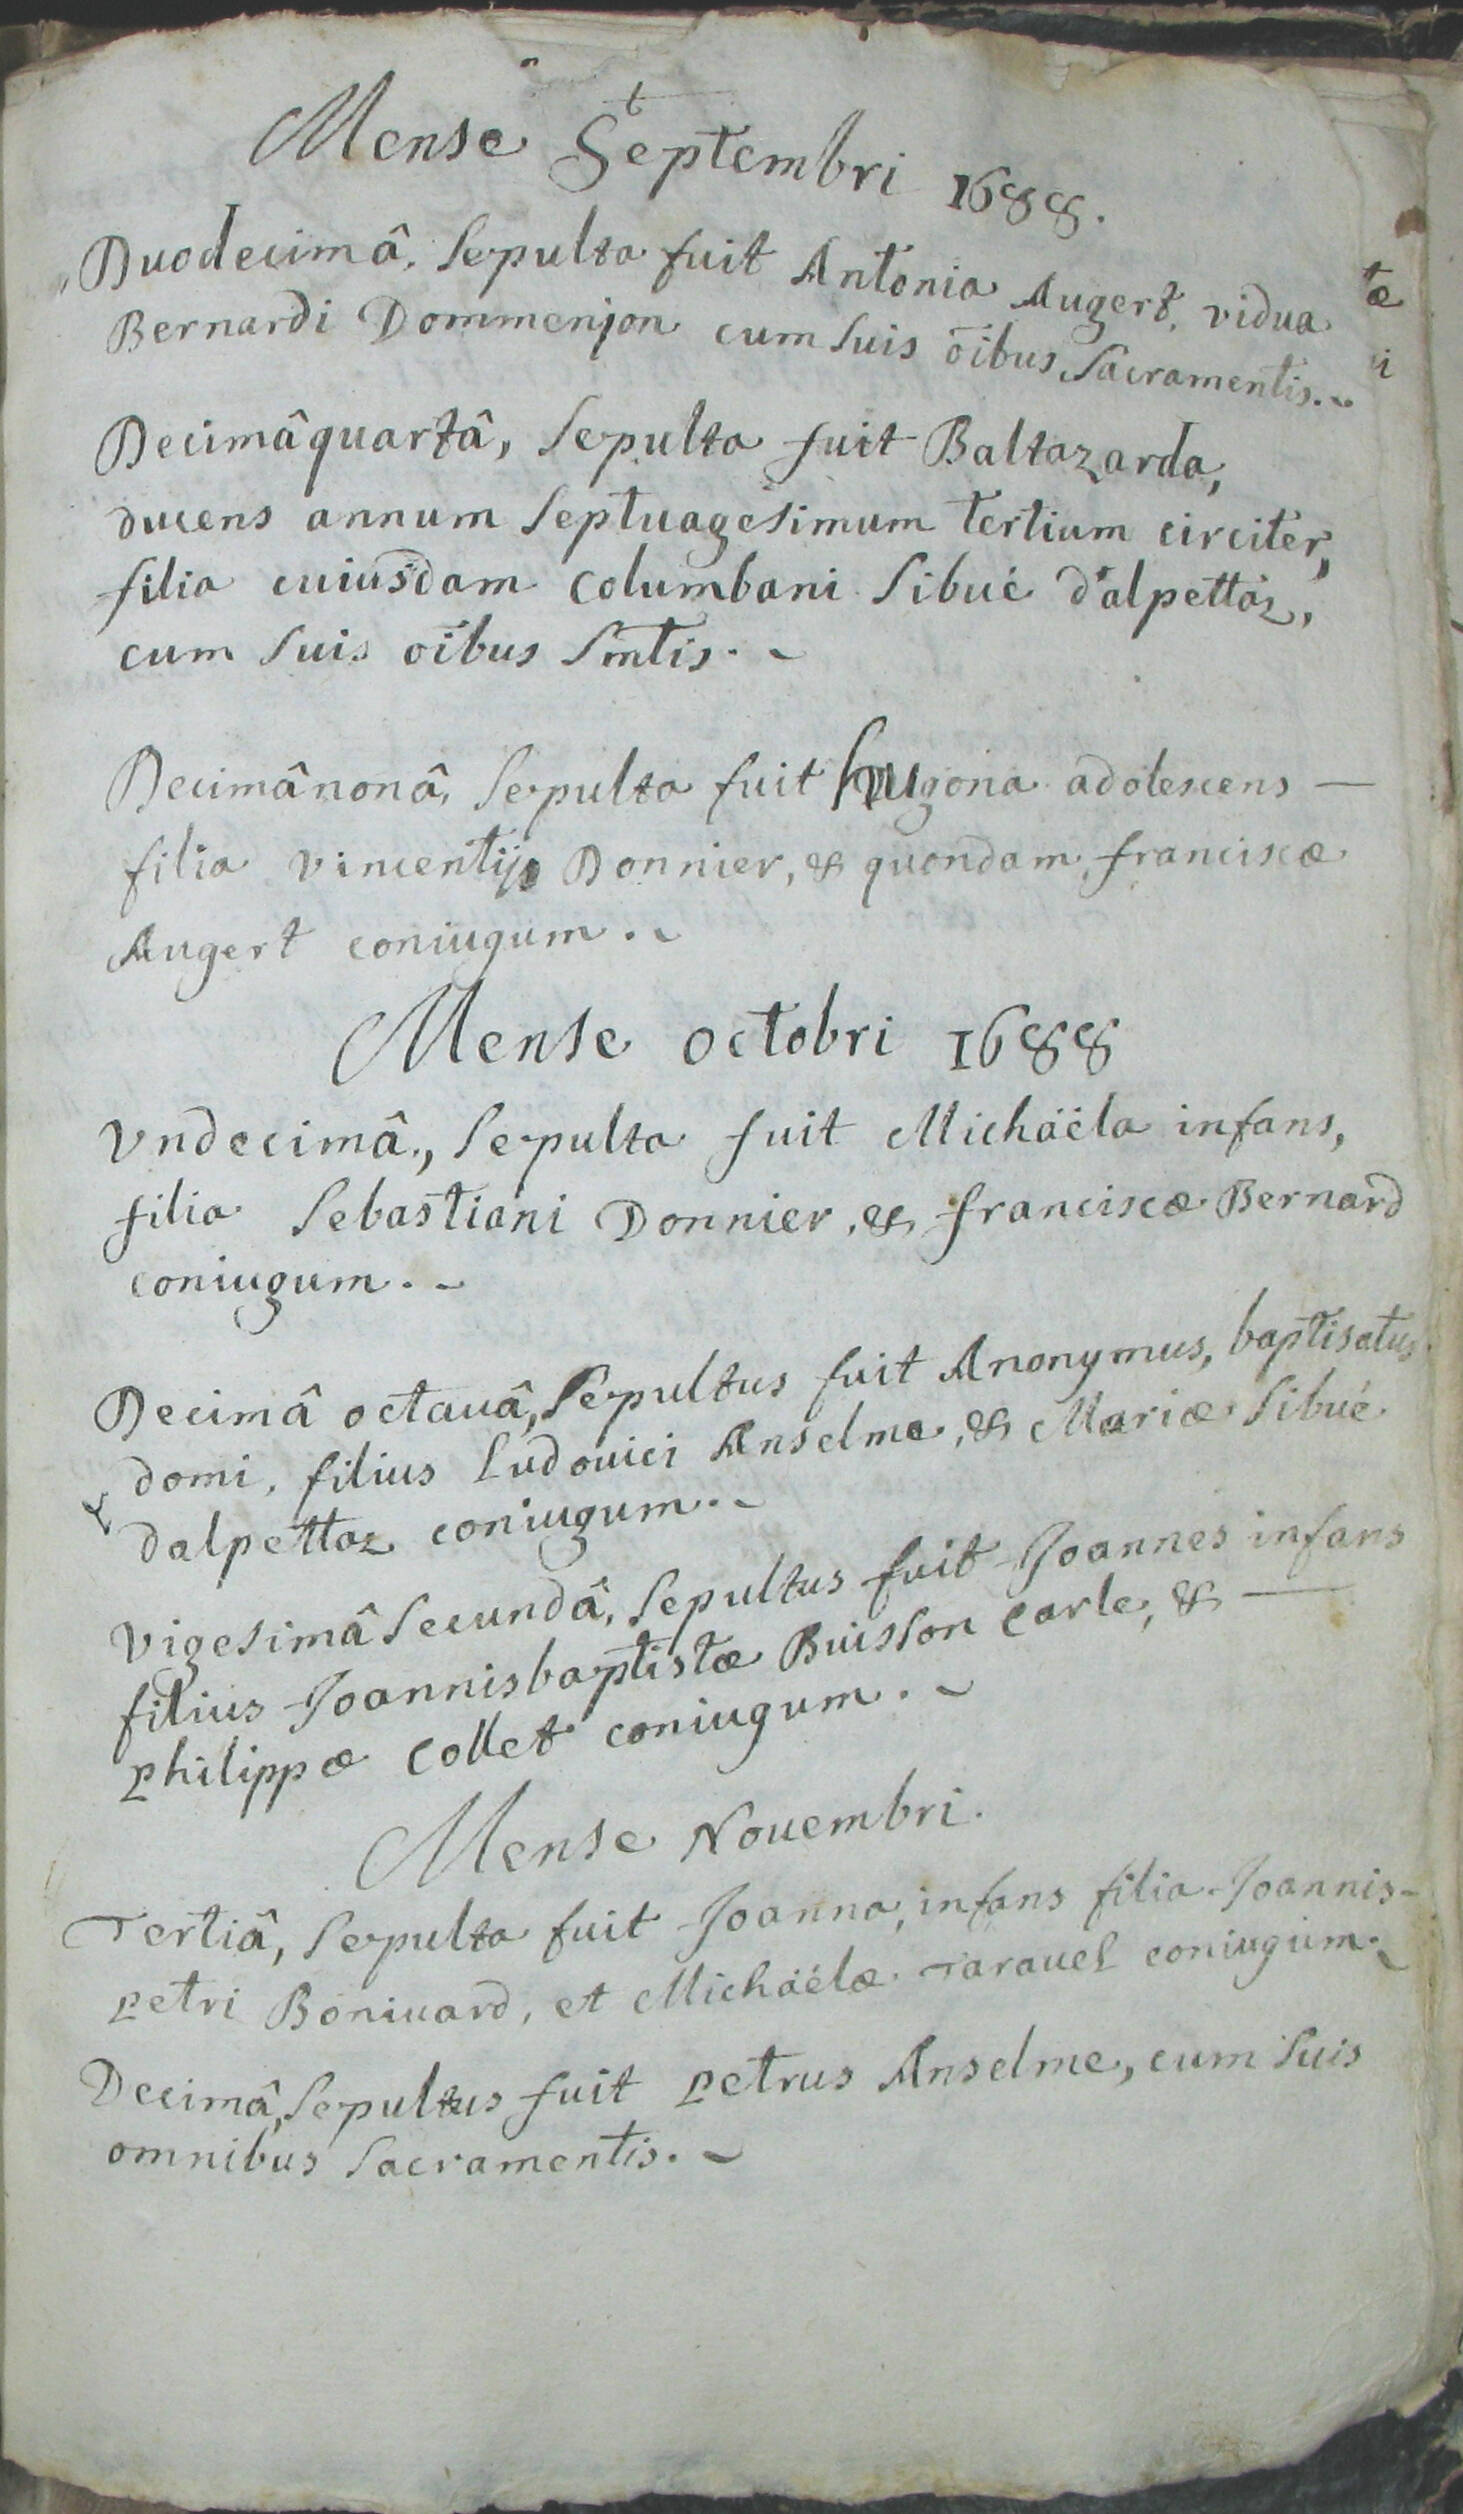 Mense Septembri 1688.
Duodecimâ, Sepulta fuit Antonia Augert, vidua
Bernardi Dommenjon cum Suis oībus Sacramentis.
Decimâquartâ, Sepulta fuit Baltazarda,
ducens annum Septuagesimum tertium circiter,
filia cuiusdam Columbani Sibué d'alpettaz,
cum Suis oībus Smtis.
Decimânonâ, Sepulta fuit hugona adolescens —
filia Vincentij Donnier, & quondam franciscæ
Augert coniugum.
Mense octobri 1688
Vndecimâ, Sepulta fuit Michaëla infans,
filia Sebastiani Donnier, & franciscæ Bernard
coniugum.
Decimâ octauâ, Sepultus fuit Anonymus, baptisatus
domi, filius Ludouici Anselme, & Mariæ Sibué
dalpettaz coniugum.
Vigesimâ Secundâ, Sepultus fuit Joannes infans
filius Joannisbaptistæ Buisson carle, & —
philippæ Collet coniugum.
Mense Nouembri.
Tertiâ, Sepulta fuit Joanna, infans filia Joannis-
petri Boniuard, et Michaëlæ Tarauel coniugum.
Decimâ, Sepultus fuit petrus Anselme, cum Suis
omnibus Sacramentis.